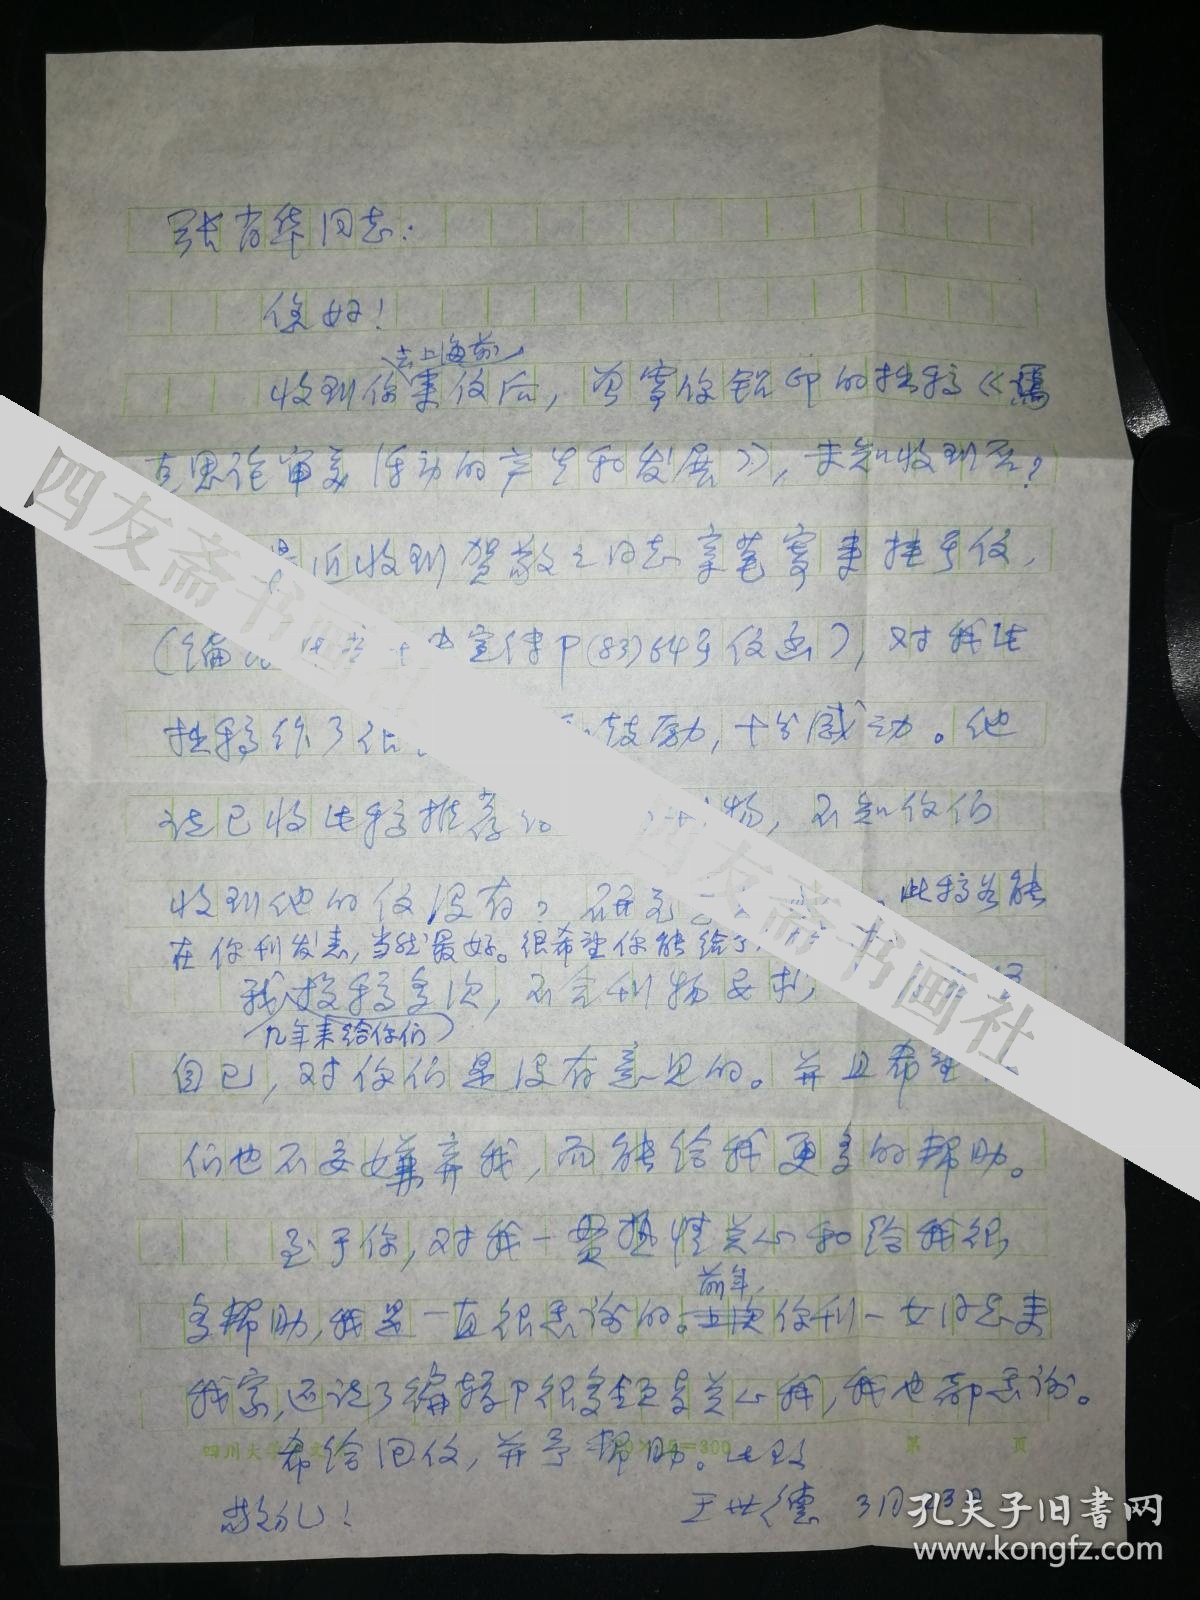 张肯华同志：
你好！
去上海前
收到你来信后，曾寄你铅印的拙稿《马
克思论审美活动的产生和发展》，未知收到否？
最近收到贺敬之同志亲笔写来挂号信，
(83)64号信函），对我此
拙稿作了 鼓励，十分感动。他
说已将此稿推荐 物，不知你们
收到他的信没有？研究 此稿若能
在你刊发表，当然最好。很希望你能给予
我投稿多次，不合刊物要求，
几年来给你们
自己，对你们是没有意见的。并且希望
们也不要嫌弃我，而能给我更多的帮助。
至于你，对我一贯热情关心和给我很
前年，
多帮助，我是一直很感谢的。你刊一女同志来
我家，还说了编辑部很多领导关心我，我也都感谢。
希给回信，并予帮助。此致
敬礼！
王世德 3月23日
四川大学 =300 第 页
四友斋书画社
四友斋书画社
孔夫子旧书网
www.kongfz.com